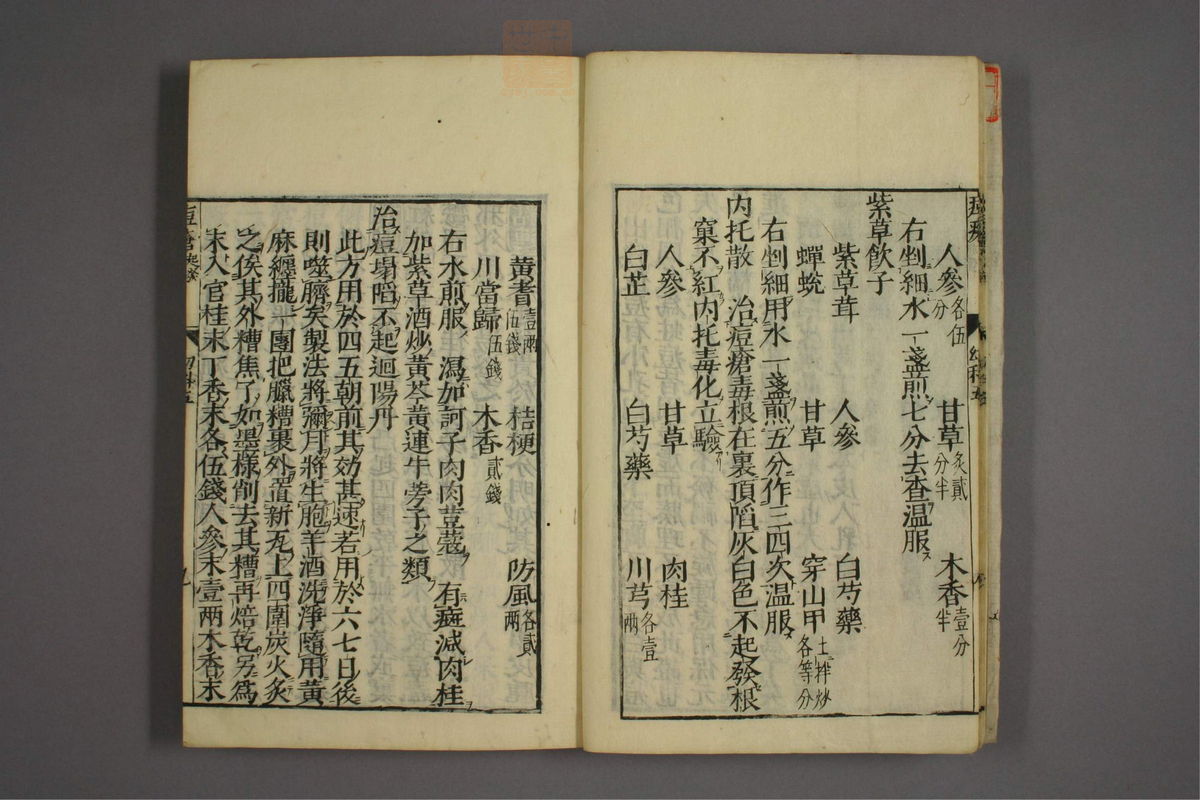 人參各伍分　甘草炙貳分半　木香壹分半
右剉細水一盞煎七分去查温服
紫草飲子
紫草茸　人參　白芍藥
蟬蛻　甘草　穿山甲土拌炒各等分
右剉細用水一盞煎五分作三四次温服
内托散　治痘瘡毒根在裏頂陷灰白色不起發根
窠不紅内托毒化立驗
人參　甘草　肉桂
白芷　白芍藥　川芎各壹兩
黄耆壹兩伍錢　桔梗　防風各貳兩
川當歸伍錢　木香貳錢
右水煎服　瀉加訶子肉肉荳蔲　有癍減肉桂
加紫草酒炒黄芩黄連牛蒡子之類
治痘塌陷不起迴陽丹
此方用於四五朝前其効甚速若用於六七日後
則噬臍矣製法將彌月將生胞羊酒洗淨隨用黄
麻纏攏一團把臘糟裹外置新瓦上四圍炭火炙
之俟其外糟焦了如墨樣削去其糟再焙乾另爲
末入官桂末丁香末各伍錢人參末壹兩木香末